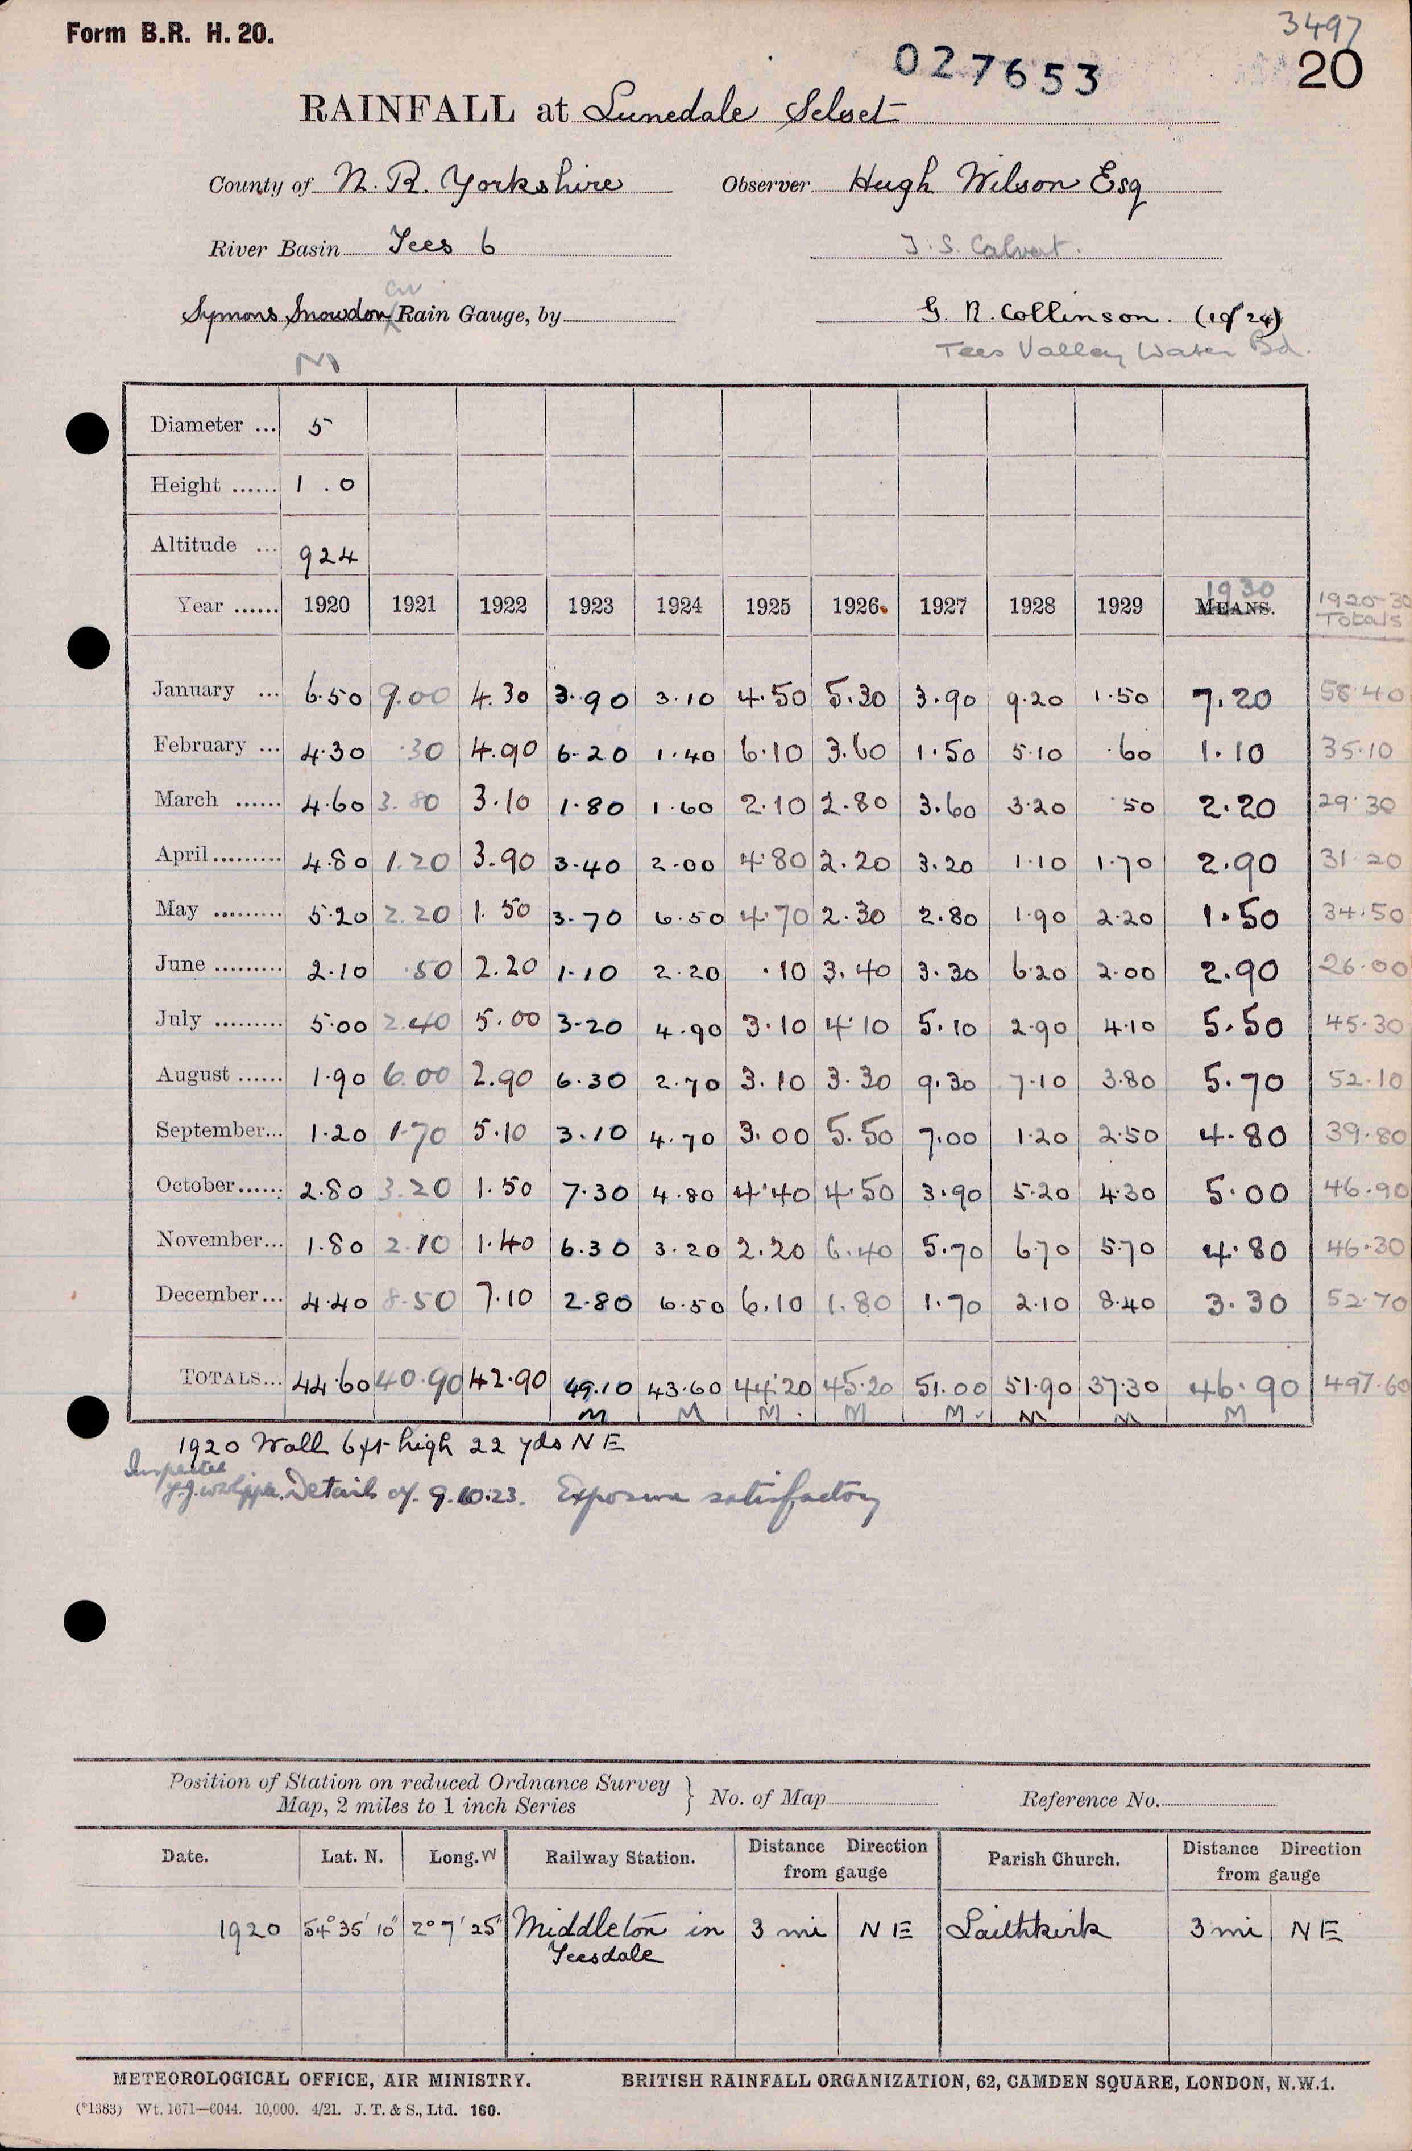 Form B.R. H. 20.
3497
027653
20
RAINFALL at Lunedale Selset
County of N. R. Yorkshire Observer Hugh Wilson Esq
River Basin Tees 6 J. S. Calvert.
Symons Snowdon Rain Gauge, by G. R. Collinson. (10/24)
M Tees Valley Water Bd.
Diameter ... 5
Height ...... 1.0
Altitude ... 924
Year ...... 1920 1921 1922 1923 1924 1925 1926. 1927 1928 1929 MEANS. 1930 1920-30 Totals
January ... 6.50 9.00 4.30 3.90 3.10 4.50 5.30 3.90 9.20 1.50 7.20 58.40
February ... 4.30 .30 4.90 6.20 1.40 6.10 3.60 1.50 5.10 .60 1.10 35.10
March ...... 4.60 3.80 3.10 1.80 1.60 2.10 2.80 3.60 3.20 .50 2.20 29.30
April ......... 4.80 1.20 3.90 3.40 2.00 4.80 2.20 3.20 1.10 1.70 2.90 31.20
May ......... 5.20 2.20 1.50 3.70 6.50 4.70 2.30 2.80 1.90 2.20 1.50 34.50
June ......... 2.10 .50 2.20 1.10 2.20 .10 3.40 3.30 6.20 2.00 2.90 26.00
July ......... 5.00 2.40 5.00 3.20 4.90 3.10 4.10 5.10 2.90 4.10 5.50 45.30
August ...... 1.90 6.00 2.90 6.30 2.70 3.10 3.30 9.30 7.10 3.80 5.70 52.10
September... 1.20 1.70 5.10 3.10 4.70 3.00 5.50 7.00 1.20 2.50 4.80 39.80
October...... 2.80 3.20 1.50 7.30 4.80 4.40 4.50 3.90 5.20 4.30 5.00 46.90
November... 1.80 2.10 1.40 6.30 3.20 2.20 6.40 5.70 6.70 5.70 4.80 46.30
December... 4.40 8.50 7.10 2.80 6.50 6.10 1.80 1.70 2.10 8.40 3.30 52.70
TOTALS... 44.60 40.90 42.90 49.10 43.60 44.20 45.20 51.00 51.90 37.30 46.90 497.60
M M M M M M M M
1920 Wall 6ft high 22 yds NE
Inspected
Details of 9.10.23. Exposure satisfactory
Position of Station on reduced Ordnance Survey Map, 2 miles to 1 inch Series } No. of Map Reference No.
Date. Lat. N. Long. W Railway Station. Distance Direction from gauge Parish Church. Distance Direction from gauge
1920 54° 35' 10" 2° 7' 25" Middleton in Teesdale 3 mi NE Laithkirk 3 mi NE
METEOROLOGICAL OFFICE, AIR MINISTRY. BRITISH RAINFALL ORGANIZATION, 62, CAMDEN SQUARE, LONDON, N.W.1.
(*1383) Wt. 1671—6044. 10,000. 4/21. J. T. & S., Ltd. 160.